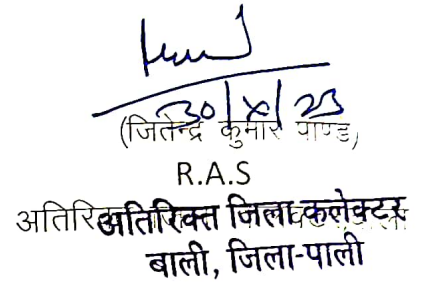 30/X/23
(जितेन्द्र कुमार पाण्ड)
R.A.S
अतिरिक्त जिला कलेक्टर
बाली, जिला-पाली